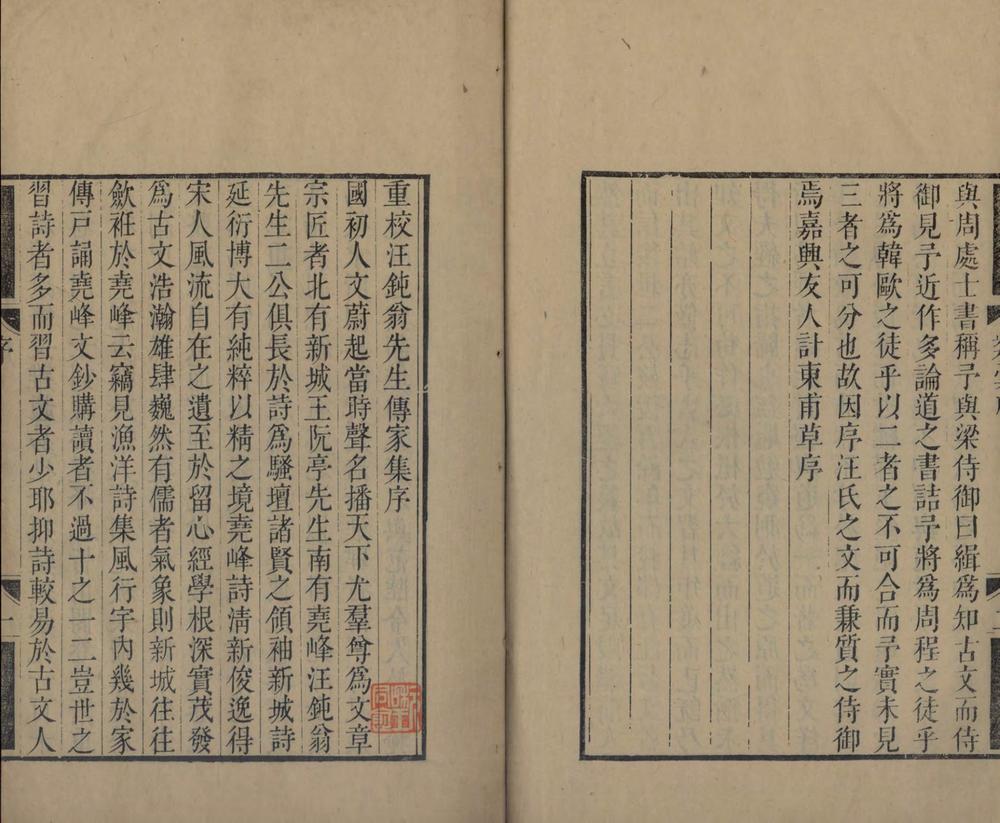 與周處士書稱予與梁侍御曰緝爲知古文而侍
御見予近作多論道之書詰予將爲周程之徒乎
將爲韓歐之徒乎以二者之不可合而予實未見
三者之可分也故因序汪氏之文而兼質之侍御
焉嘉興友人計東甫草序
二
重校汪鈍翁先生傳家集序
國初人文蔚起當時聲名播天下尤羣尊爲文章
宗匠者北有新城王阮亭先生南有堯峰汪鈍翁
先生二公俱長於詩爲騷壇諸賢之領袖新城詩
延衍博大有純粹以精之境堯峰詩清新俊逸得
宋人風流自在之遺至於留心經學根深實茂發
爲古文浩瀚雄肆巍然有儒者氣象則新城往往
歛袵於堯峰云竊見漁洋詩集風行宇內幾於家
傳戸誦堯峰文鈔購讀者不過十之一二豈世之
習詩者多而習古文者少耶抑詩較易於古文人
序
一